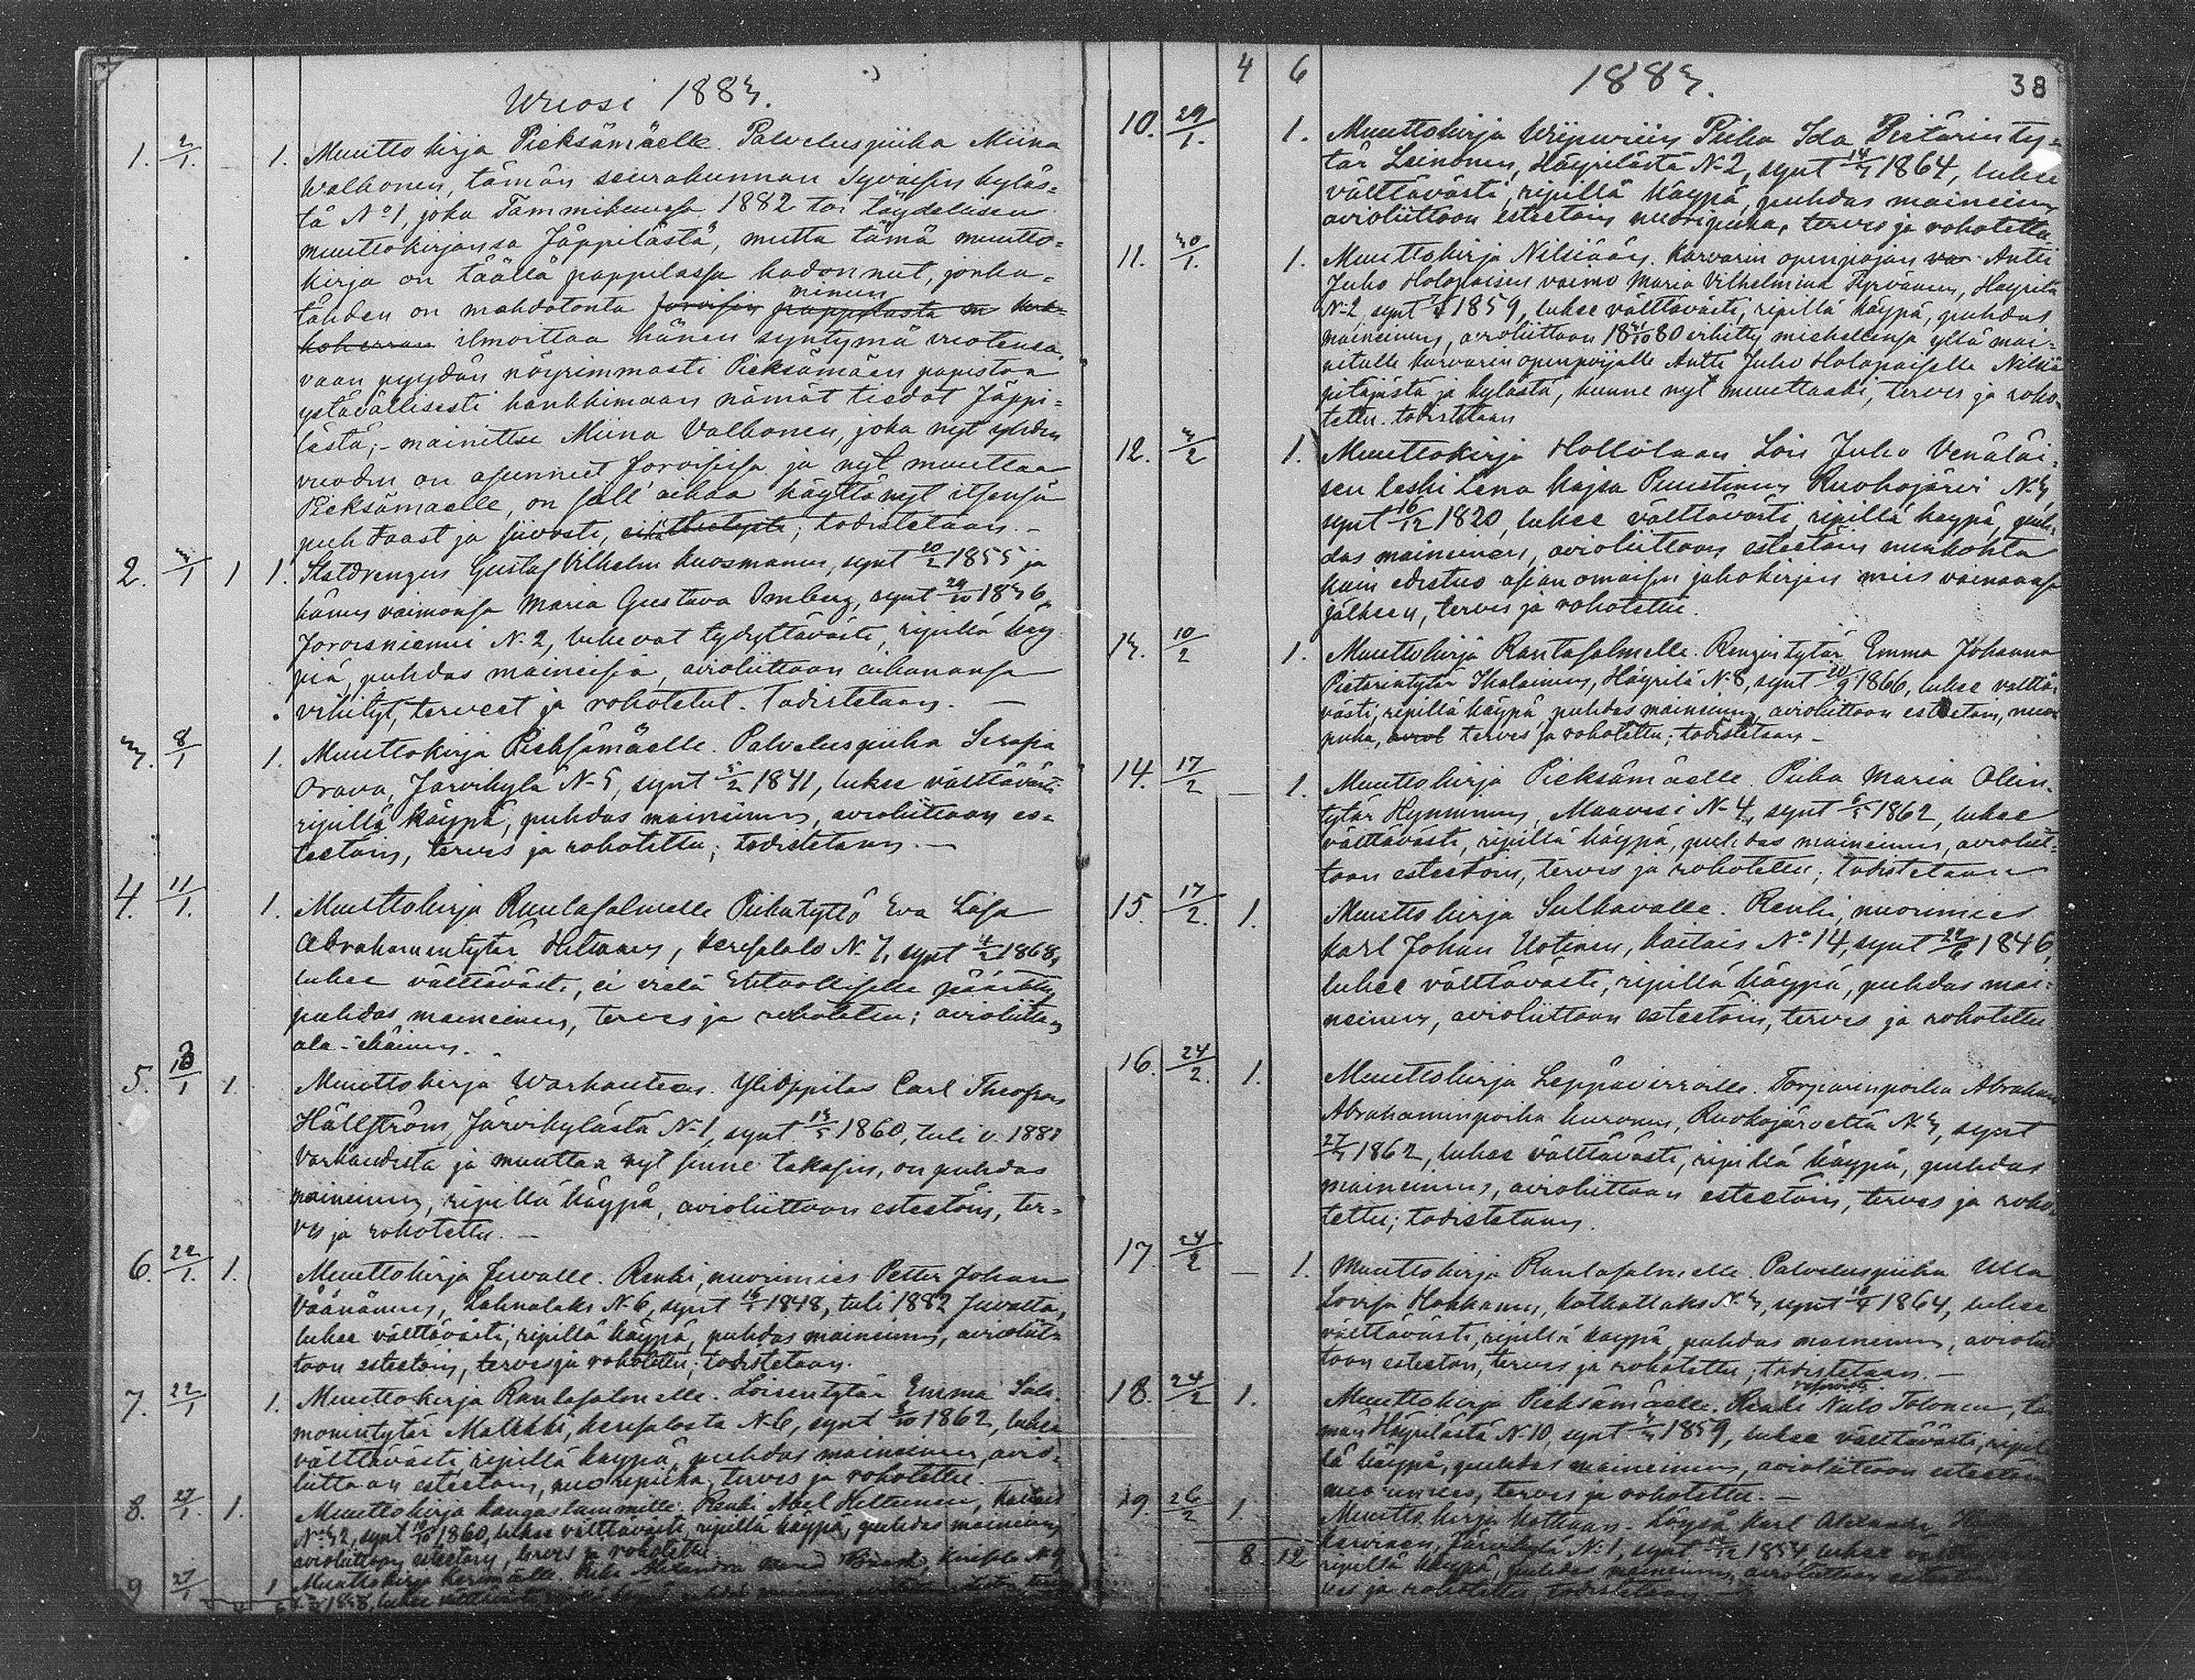 Wuosi 1883.
1. 2/1. 1. Muuttokirja Pieksämäelle. Palveluspiika Miina
Walkonen, tämän seurakunnan Sywäisen kyläs=
tä No 1, joka Tammikuussa 1882 toi täydellisen
muuttokirjansa Jäppilästä, mutta tämä muutto=
kirja on täällä pappilassa kadonnut, jonka=
tähden on mahdotonta minun
ilmoittaa hänen syntymä vuotensa,
vaan pyydän nöyrimmästi Pieksämäen papistoa
ystävällisesti hankkimaan nämät tiedot Jäppi=
lästä; - mainittu Miina Valkonen, joka nyt yhden
vuoden on asunnut Joroisissa ja nyt muuttaa
Pieksämaelle, on sill' aikaa käyttänyt itsensä
puhtaast ja siivosti, todistetaan. -
2. 3/1 1 1. Statdrengen Gustaf Vilhelm Kuosmanen, synt 20/2 1855 ja
hänen vaimonsa Maria Gustava Omberg, synt 29/10 1836,
Joroisniemi N. 2, lukevat tydyttävästi, ripillä käy
piä, puhdas maineisia, avioliittoon aikanansa
vihityt, terveet ja rokotetut. Todistetaan. -
3. 8/1 1. Muuttokirja Pieksämäelle. Palveluspiika Serafia
Orava, Järvikylä N-5, synt 5/2 1841, lukee välttävästi
ripillä käypä, puhdas maineinen, avioliittoon es=
teetöin, terves ja rokotettu; todistetaan. -
4. 11/1. 1. Muuttokirja Rantasalmelle Piikatyttö Eva Lisa
Abrahamintytär Hiltunen, Kerislalo N. 7, synt 4/2 1868,
lukee välttäväst, ei vielä Ehtoolliselle päässyt,
puhdas maineinen, terves ja rokotettu; avioliittoon
ala-ikäinen.
5. 1. Muuttokirja Warkauteen. Ylioppilas Carl Theofron
Hällström Järvikylästä N-1, synt 13/5 1860, tuli v. 1881
Varkaudista ja muuttaa nyt sinne takasin, on puhdas
maineinen, ripillä käypä, avioliittoon esteetöin, ter=
ves ja rokotettu. -
6. 22/1. 1. Muuttokirja Juvalle. Renki, nuorimies Petter Johan
Väänänen, Lahnalaks N-6, synt 16/1 1848, tuli 1882 Juvalta,
lukee välttävästi, ripillä käypä, puhdas maineinen, aviolit=
toon esteetöin, terves ja rokotettu; todistetaan.
7. 22/1 1. Muuttokirja Rantasalmelle. Loisentytär Emma Salo=
monintytär Malkki, Kerisalosta N-6, synt 8/10 1862, lukee
välttävästi, ripillä käypä, puhdas maineinen, avio=
liittoon esteetöin, nuoripiika, terves ja rokotettu. -
8. 27/1. 1. Muuttokirja Kangaslammille. Renki Abel Hiltunen, Kaitais
No 32, synt 19/10 1860, lukee välttävästi, ripillä käypä, puhdas maineinen,
avioliittoon esteetöin, terves ja rokotettu.
9 27/1 1 Muuttokirja Kerimäelle. Piika Alexandra
4 6 1883. 38
10. 29/1. 1. Muuttokirja Wiipuriin Piika Ida Pietärinty=
tär Leinonen, Häyrilästä N-2, synt 14/7 1864, lukee
välttävästi, ripillä käypä, puhdas maineinen
avioliittoon esteetöin nuoripiika, terves ja rokotettu
11. 30/1. 1. Muuttokirja Nilsiään. Karvarin openpojan Antti
Juho Holopaisen vaimo Maria Vilhelmiina Tyrvänen, Häyrilä
N-2, synt 1859, lukee välttävästi, ripillä käypä, puhdas
maineinen, avioliittoon 1880 vihitty miehellensä yllä mai=
nitulle karvarin openpojalle Antti Juho Holopaiselle Nilsiä
pitäjästä ja kylästä, kunne nyt muuttaaki, terves ja roko=
tettu. todistetaan
12. 3/2 1. Muuttokirja Hollolaan Lois Juho Venäläi=
sen leski Lena Kajsa Puustinen Ruohojärvi N-3,
synt 16/12 1820, lukee välttävästi, ripillä käypä, puh=
das maineinen, avioliittoon esteetöin niinkohta
kuin edistuo asian omaisen jakokirjan mies vainaansa
jälkeen, terves ja rokotettu.
13. 10/2 1. Muuttokirja Rantasalmelle. Renginytär Emma Johanna
Pietarintytär Ikalainen, Häyrilä N-8, synt 20/9 1866, lukee välttä=
västi, ripillä käypä, puhdas maineinen, avioliittoon esteetöin, nuori
piika, terves ja rokotettu; todistetaan -
14. 17/2 1. Muuttokirja Pieksämäelle. Piika Maria Olin=
tytär Hynninen, Maavesi N-4, synt 1862, lukee
välttävästi, ripillä käypä, puhdas maineinen, avioliit=
toon esteetöin, terves ja rokotettu; todistetaan
15. 17/2. 1. Muuttokirja Sulkavalle. Renki, nuorimies
Karl Johan Uotinen, Kaitais No 14, synt 22/6 1846,
lukee välttävästi, ripillä käypä, puhdas mai=
neinen, avioliittoon esteetöin, terves ja rokotettu
16. 24/2. 1. Muuttokirja Leppävirroille. Torparinpoika Abraham
Abrahaminpoika Kuronen, Ruokojärveltä N-3, synt
27/7 1862, lukee välttävästi, ripillä käypä, puhdas
maineinen, avioliittoon esteetöin, terves ja roko=
tettu; todistetaan.
17. 24/2 1. Muuttokirja Rantasalmelle. Palveluspiika Ulla
Lovisa Hakkanen, Kotkatlaks N-3, synt 1864, lukee
välttävästi, ripillä käypä, puhdas maineinen, aviolii
toon esteetön, terves ja rokotettu; todistetaan. -
18. 24/2 1. Muuttokirja Pieksämäelle. Renki Nilo Tolonen, tä
män Häyrilästä N-10, synt 1859, lukee välttävästi, ripil
lä käypä, puhdas maineinen, avioliittoon esteetöin
nuorimies, terves ja rokotettu. -
19. 26/2 1 Muuttokirja Kotkaan. Löysä Karl Alexander
Kervinen, Järvikylä N:1, synt 1854, lukee
8 12 ripillä käypä, puhdas maineinen, avioliittoon
ves ja rokotettu, todistetaan -